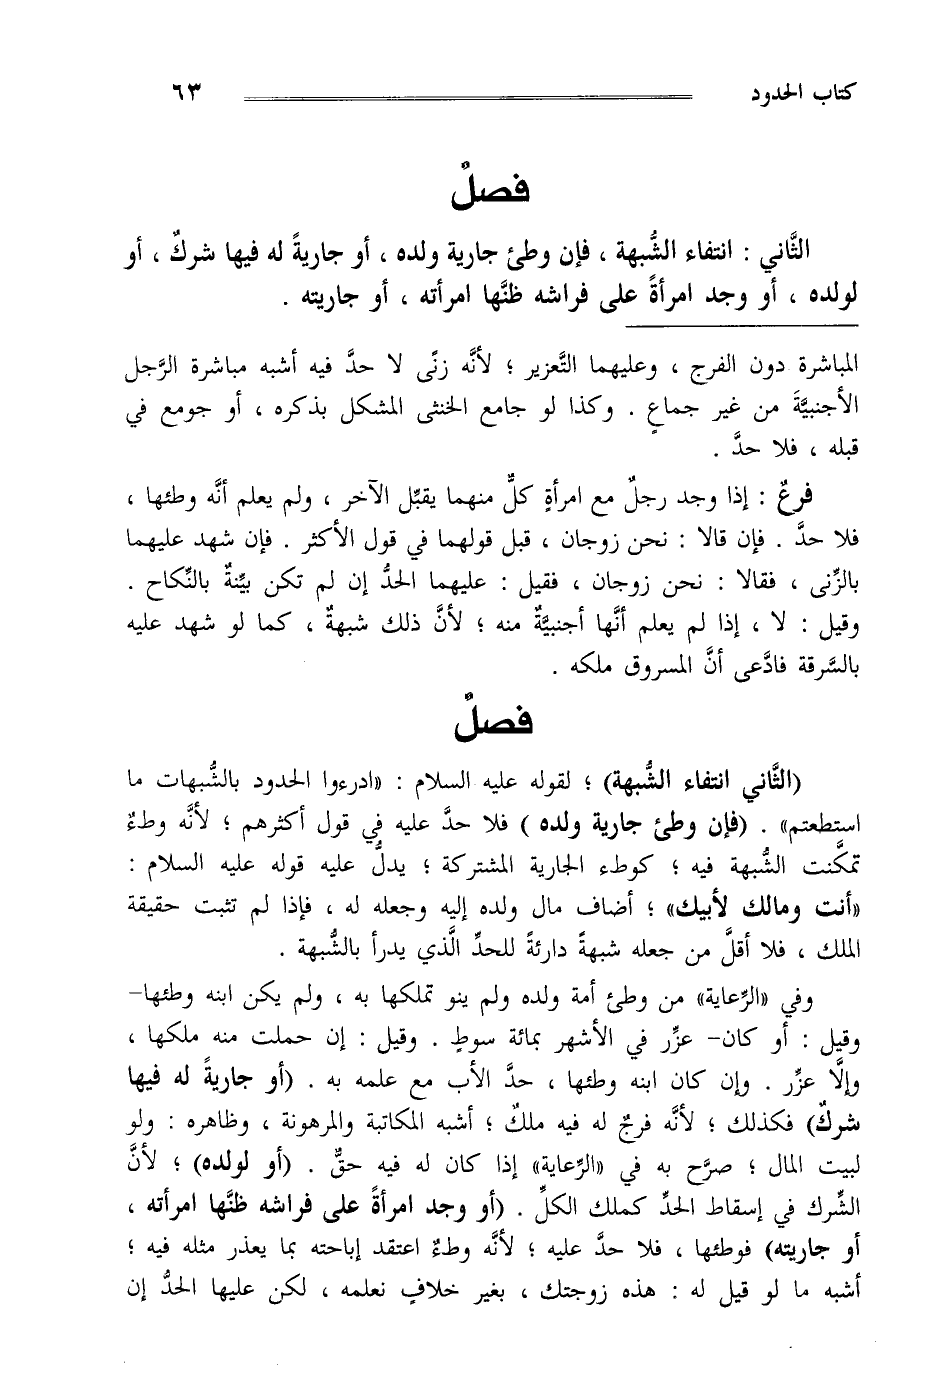 كتاب الحدود ٦٣
فصلٌ
الثَّاني : انتفاء الشُّبهة ، فإن وطئ جارية ولده ، أو جاريةً له فيها شركٌ ، أو
لولده ، أو وجد امرأةً على فراشه ظنَّها امرأته ، أو جاريته .
المباشرة دون الفرج ، وعليهما التَّعزير ؛ لأنَّه زنًى لا حدَّ فيه أشبه مباشرة الرَّجل
الأجنبيَّةَ من غير جماعٍ . وكذا لو جامع الخنثى المشكل بذكره ، أو جومع في
قبله ، فلا حدَّ .
فرعٌ : إذا وجد رجلٌ مع امرأةٍ كلٌّ منهما يقبِّل الآخر ، ولم يعلم أنَّه وطئها ،
فلا حدَّ . فإن قالا : نحن زوجان ، قبل قولهما في قول الأكثر . فإن شهد عليهما
بالزِّنى ، فقالا : نحن زوجان ، فقيل : عليهما الحدُّ إن لم تكن بيِّنةٌ بالنِّكاح .
وقيل : لا ، إذا لم يعلم أنَّها أجنبيَّةٌ منه ؛ لأنَّ ذلك شبهةٌ ، كما لو شهد عليه
بالسَّرقة فادَّعى أنَّ المسروق ملكه .
فصلٌ
(الثَّاني انتفاء الشُّبهة) ؛ لقوله عليه السلام : «ادرءوا الحدود بالشُّبهات ما
استطعتم» . (فإن وطئ جارية ولده ) فلا حدَّ عليه في قول أكثرهم ؛ لأنَّه وطءٌ
تمكَّنت الشُّبهة فيه ؛ كوطء الجارية المشتركة ؛ يدلُّ عليه قوله عليه السلام :
«أنت ومالك لأبيك» ؛ أضاف مال ولده إليه وجعله له ، فإذا لم تثبت حقيقة
الملك ، فلا أقلَّ من جعله شبهةً دارئةً للحدِّ الَّذي يدرأ بالشُّبهة .
وفي «الرِّعاية» من وطئ أمة ولده ولم ينو تملكها به ، ولم يكن ابنه وطئها-
وقيل : أو كان- عزِّر في الأشهر بمائة سوطٍ . وقيل : إن حملت منه ملكها ،
وإلَّا عزِّر . وإن كان ابنه وطئها ، حدَّ الأب مع علمه به . (أو جاريةً له فيها
شركٌ) فكذلك ؛ لأنَّه فرجٌ له فيه ملكٌ ؛ أشبه المكاتبة والمرهونة ، وظاهره : ولو
لبيت المال ؛ صرَّح به في «الرِّعاية» إذا كان له فيه حقٌّ . (أو لولده) ؛ لأنَّ
الشِّرك في إسقاط الحدِّ كملك الكلِّ . (أو وجد امرأةً على فراشه ظنَّها امرأته ،
أو جاريته) فوطئها ، فلا حدَّ عليه ؛ لأنَّه وطءٌ اعتقد إباحته بما يعذر مثله فيه ؛
أشبه ما لو قيل له : هذه زوجتك ، بغير خلافٍ نعلمه ، لكن عليها الحدُّ إن